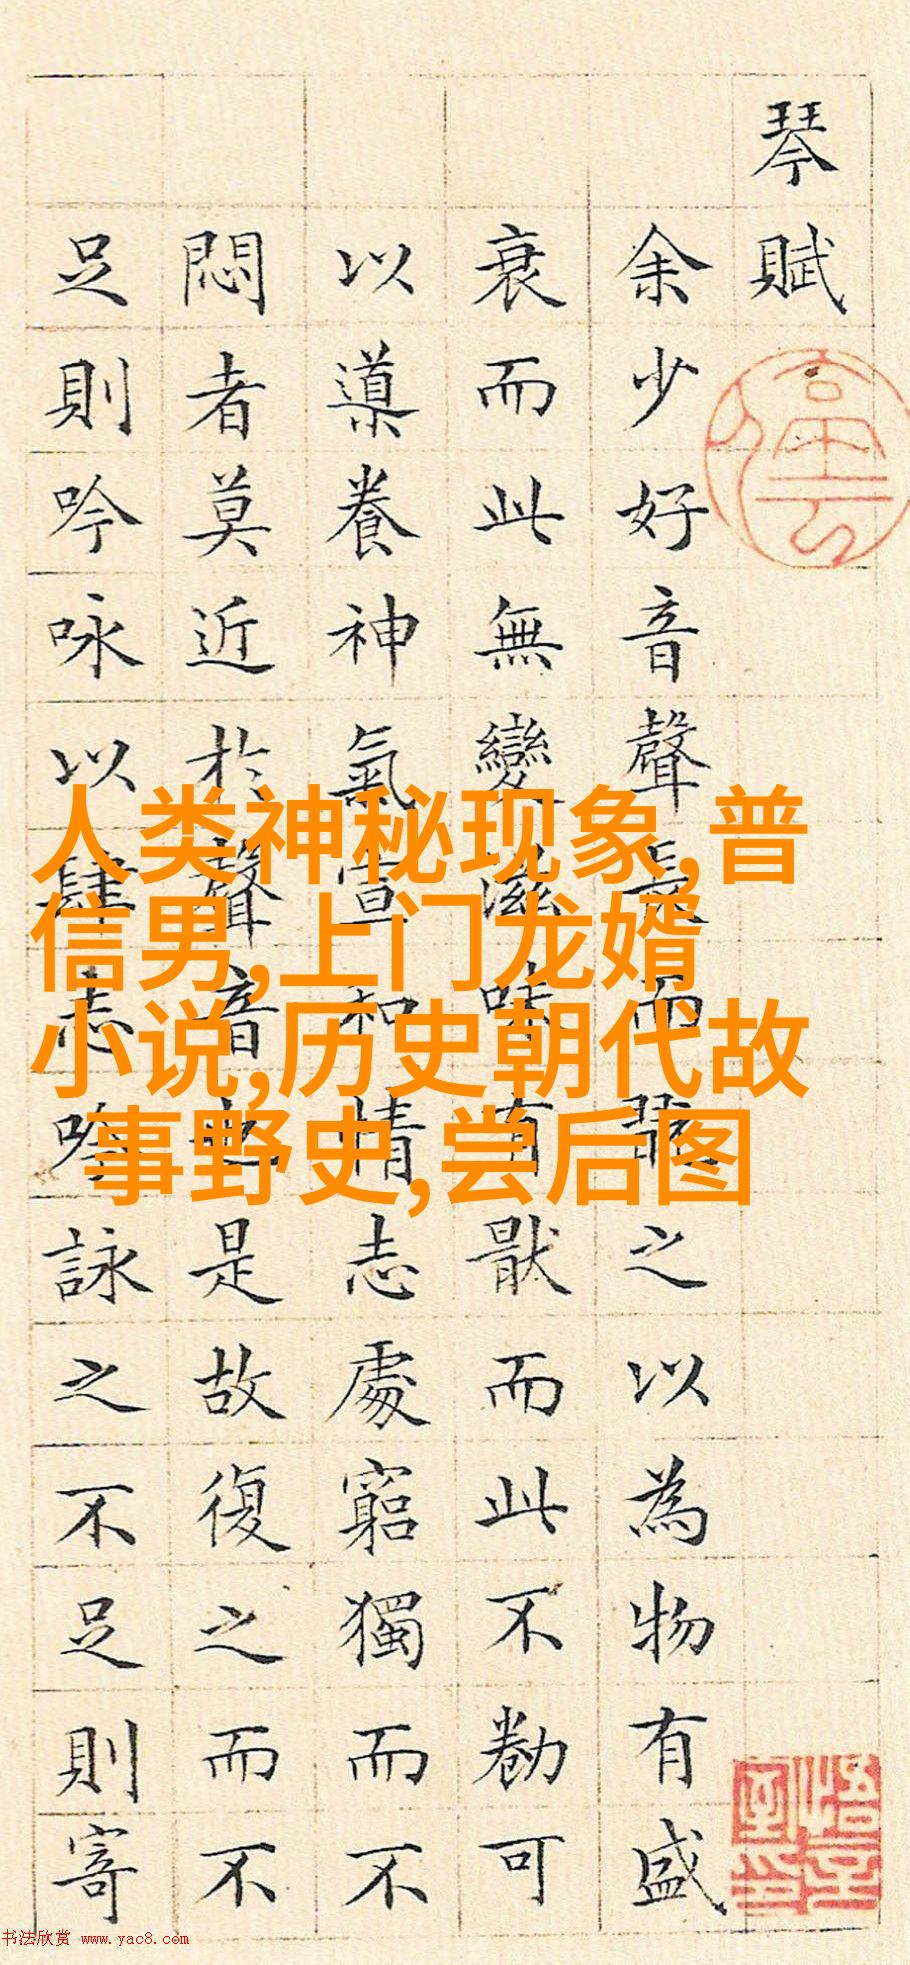 琴賦
余少好音聲長而翫之以為物有盛
衰而此無變滋味有猒而此不勌可
以導養神氣宣和情志處窮獨而不
悶者莫近於聲音也是故復之而不
足則吟咏以肆志吟詠之不足則寄
人类神秘现象,普
信男,上门龙婿
小说,历史朝代故
事野史,尝后图
书法欣赏 www.yac8.com